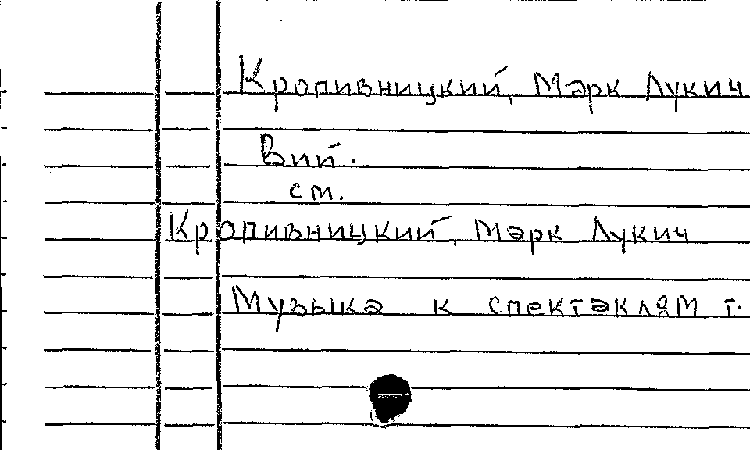 Кропивницкий, Марк Лукич
Вий.
см.
Кропивницкий, Марк Лукич
Музыка к спектаклям т.